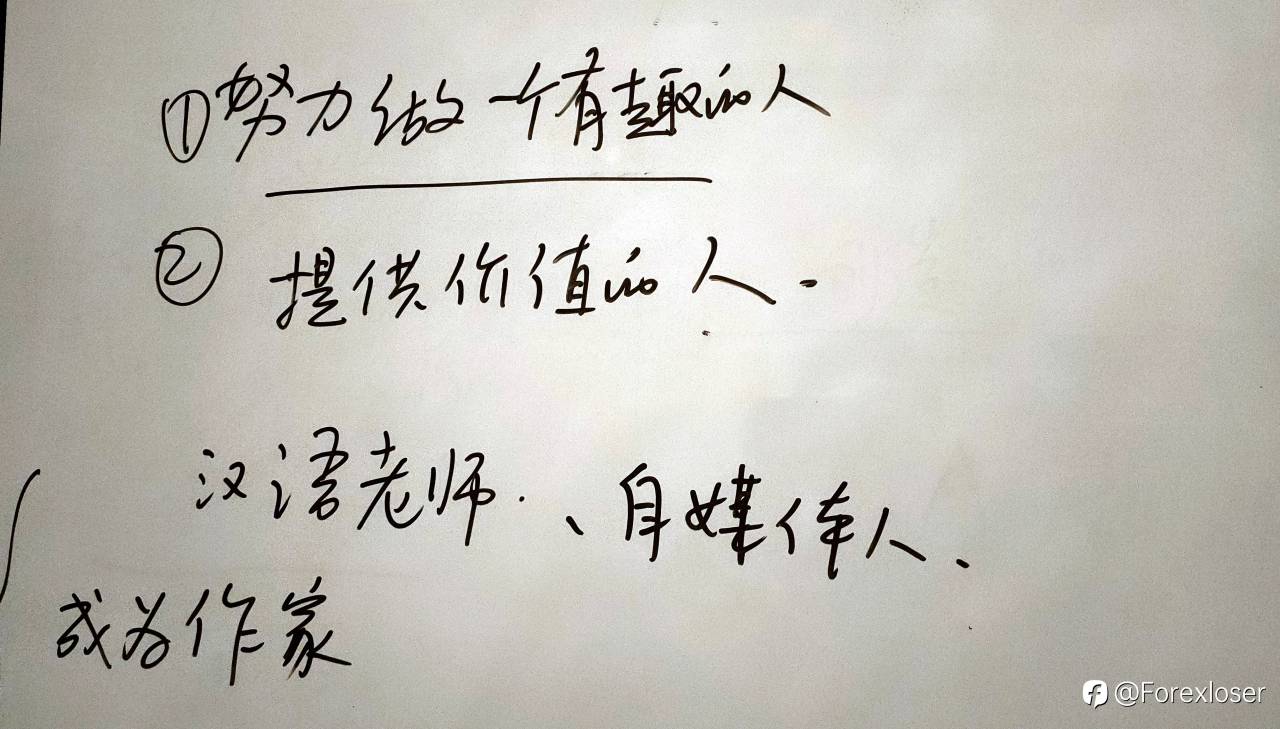 ①努力做一个有趣的人
②提供价值的人.
汉语老师.、自媒体人.
成为作家
@Forexloser